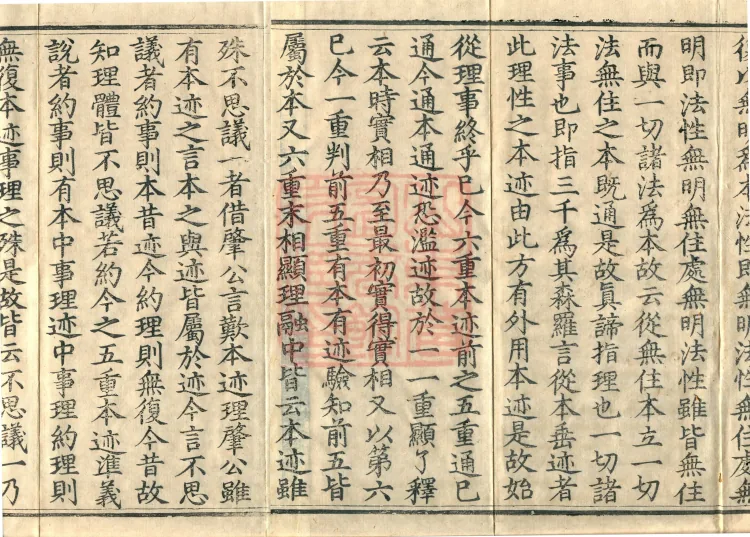 復以無明爲本法性即無明法性無住處無
明即法性無明無住處無明法性雖皆無住
而與一切諸法爲本故云從無住本立一切
法無住之本既通是故眞諦指理也一切諸
法事也即指三千爲其森羅言從本垂迹者
此理性之本迹由此方有外用本迹是故始
從理事終乎已今六重本迹前之五重通已
通今通本通迹恐濫迹故於一一重顯了釋
云本時實相乃至最初實得實相又以第六
已今一重判前五重有本有迹驗知前五皆
屬於本又六重末相顯理融中皆云本迹雖
殊不思議一者借肇公言歎本迹理肇公雖
有本迹之言本之與迹皆屬於迹今言不思
議者約事則本昔迹今約理則無復今昔故
知理體皆不思議若約今之五重本迹准義
說者約事則有本中事理迹中事理約理則
無復本迹事理之殊是故皆云不思議一乃